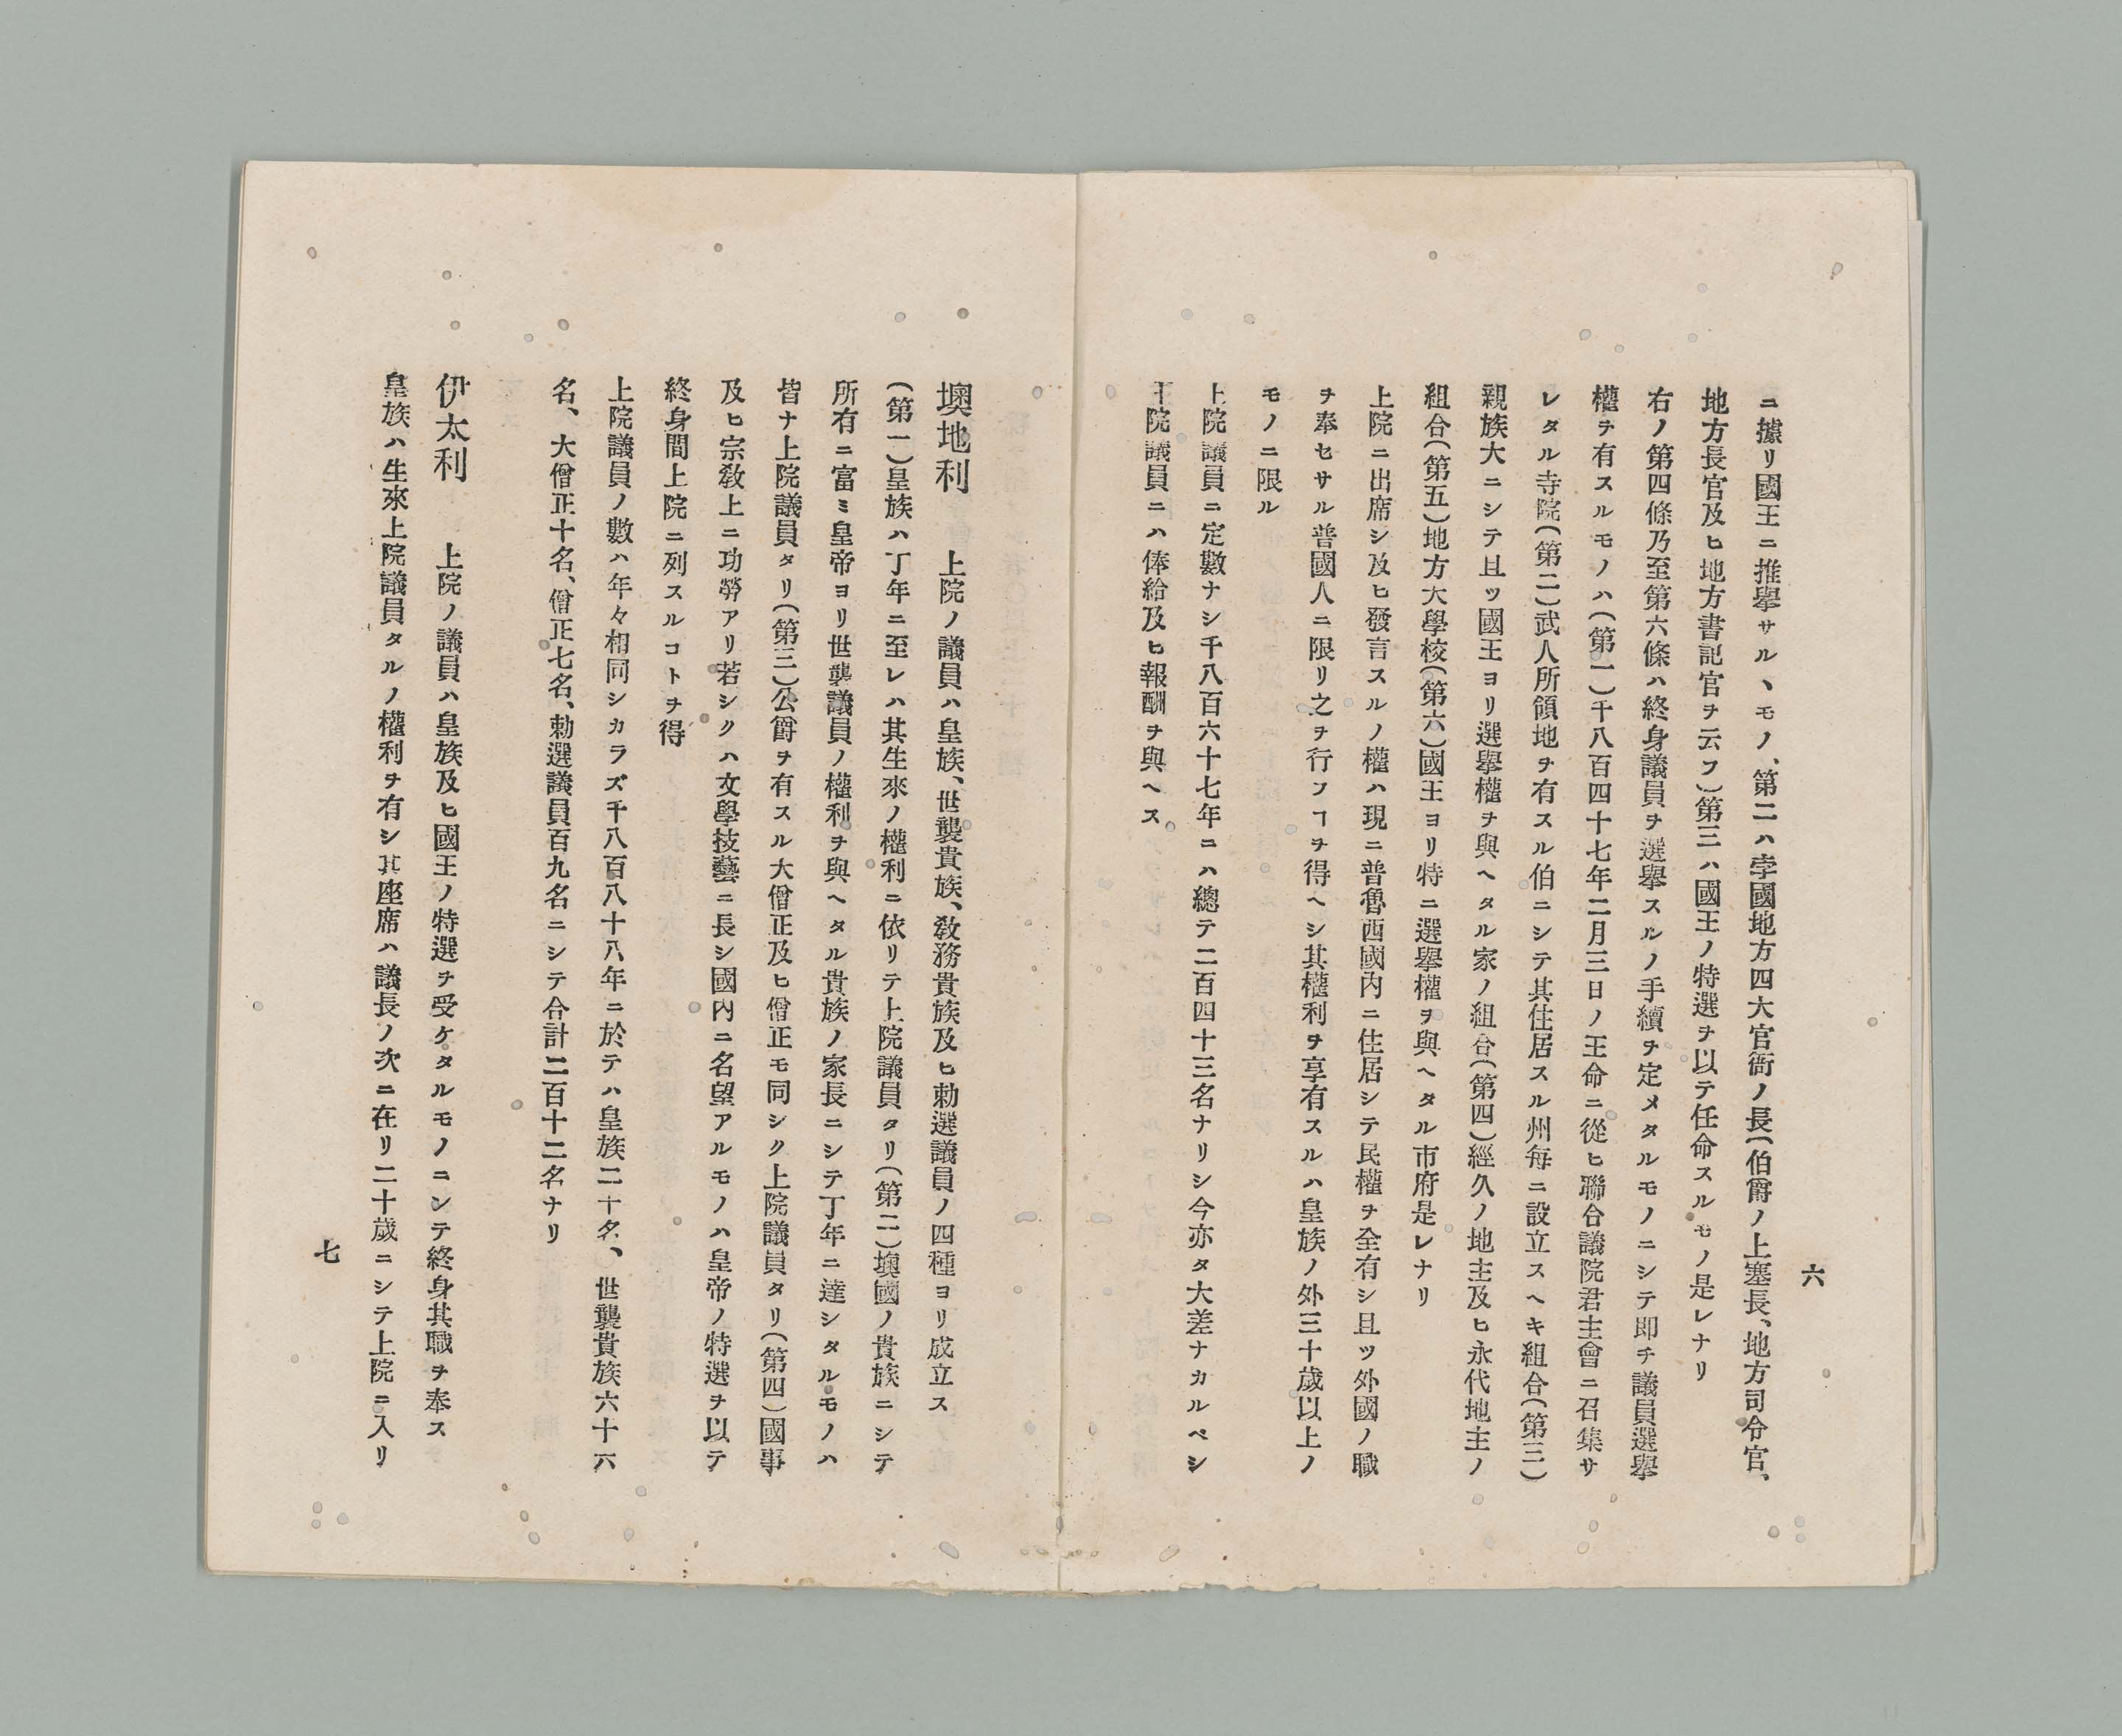 六
ニ據リ國王ニ推擧サルヽモノ、第二ハ孛國地方四大官衙ノ長(伯爵ノ上塞長、地方司令官、
地方長官及ヒ地方書記官ヲ云フ)第三ハ國王ノ特選ヲ以テ任命スルモノ是レナリ
右ノ第四條乃至第六條ハ終身議員ヲ選擧スルノ手續ヲ定メタルモノニシテ即チ議員選擧
權ヲ有スルモノハ(第一)千八百四十七年二月三日ノ王命ニ從ヒ聯合議院君主會ニ召集サ
レタル寺院(第二)武人所領地ヲ有スル伯ニシテ其住居スル州每ニ設立スヘキ組合(第三)
親族大ニシテ且ッ國王ヨリ選擧權ヲ與ヘタル家ノ組合(第四)經久ノ地主及ヒ永代地主ノ
組合(第五)地方大學校(第六)國王ヨリ特ニ選擧權ヲ與ヘタル市府是レナリ
上院ニ出席シ及ヒ發言スルノ權ハ現ニ普魯西國內ニ住居シテ民權ヲ全有シ且ッ外國ノ職
ヲ奉セサル普國人ニ限リ之ヲ行フヿヲ得ヘシ其權利ヲ享有スルハ皇族ノ外三十歲以上ノ
モノニ限ル
上院議員ニ定數ナシ千八百六十七年ニハ總テ二百四十三名ナリシ今亦タ大差ナカルベシ
王院議員ニハ俸給及ヒ報酬ヲ與ヘス
墺地利 上院ノ議員ハ皇族、世襲貴族、敎務貴族及ヒ勅選議員ノ四種ヨリ成立ス
(第一)皇族ハ丁年ニ至レハ其生來ノ權利ニ依リテ上院議員タリ(第二)墺國ノ貴族ニシテ
所有ニ富ミ皇帝ヨリ世襲議員ノ權利ヲ與ヘタル貴族ノ家長ニシテ丁年ニ達シタルモノハ
皆ナ上院議員タリ(第三)公爵ヲ有スル大僧正及ヒ僧正モ同シク上院議員タリ(第四)國事
及ヒ宗敎上ニ功勞アリ若シクハ文學技藝ニ長シ國內ニ名望アルモノハ皇帝ノ特選ヲ以テ
終身間上院ニ列スルコトヲ得
上院議員ノ數ハ年々相同シカラズ千八百八十八年ニ於テハ皇族二十名、世襲貴族六十六
名、大僧正十名、僧正七名、勅選議員百九名ニシテ合計二百十二名ナリ
伊太利 上院ノ議員ハ皇族及ヒ國王ノ特選ヲ受ケタルモノニシテ終身其職ヲ奉ス
皇族ハ生來上院議員タルノ權利ヲ有シ其座席ハ議長ノ次ニ在リ二十歲ニシテ上院ニ入リ
七